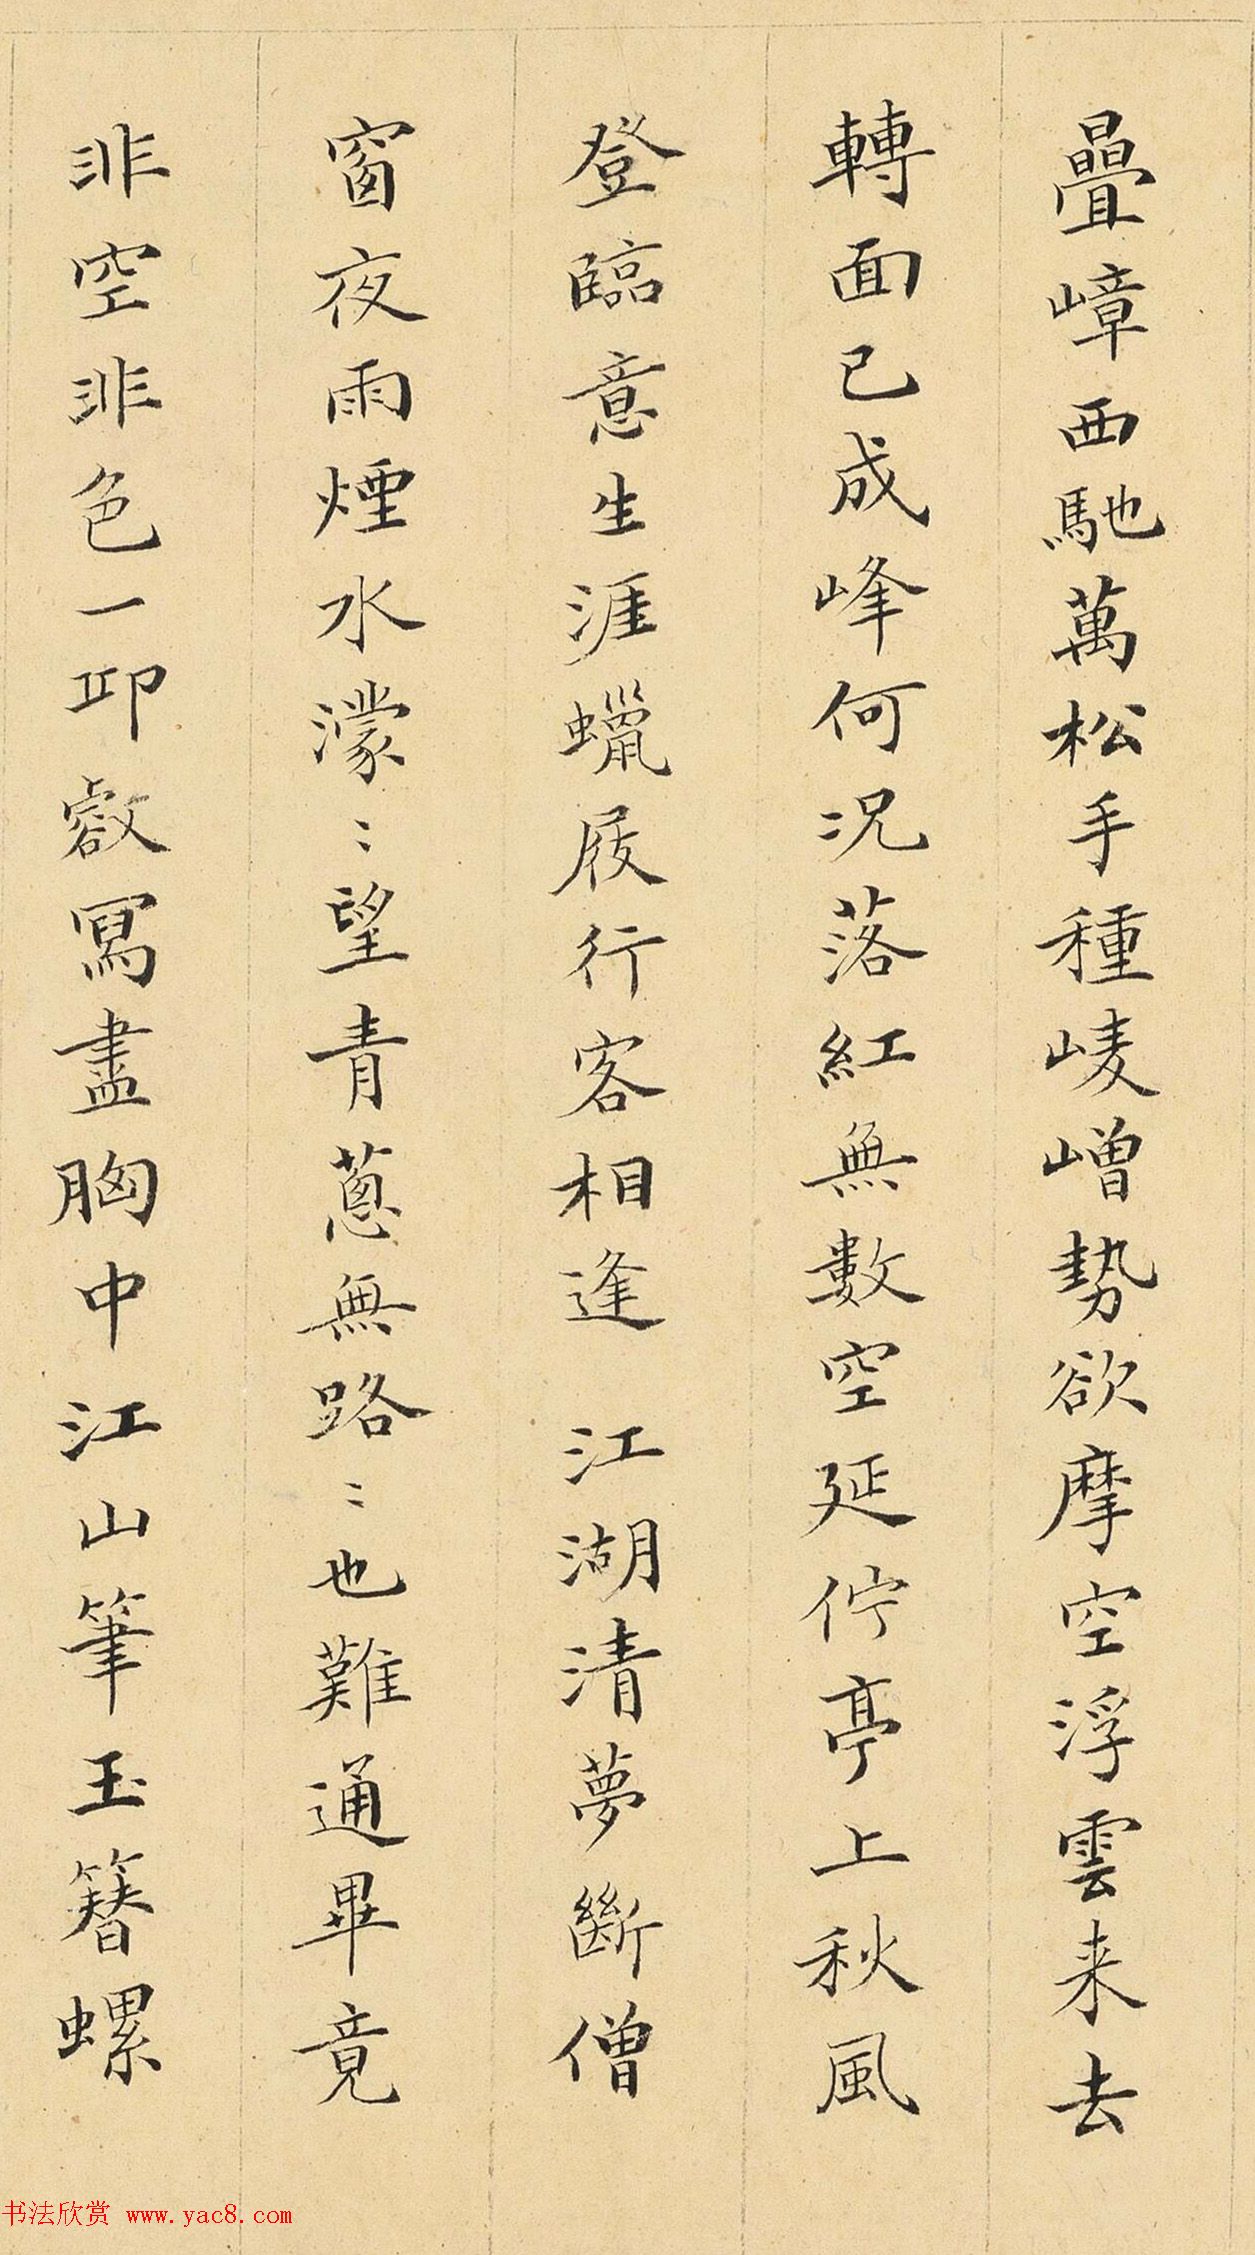 疊嶂西馳萬松手種崚嶒勢欲摩空浮雲来去
轉面已成峰何況落紅無數空延佇亭上秋風
登臨意生涯蠟屐行客相逢 江湖清夢斷僧
窗夜雨煙水濛〻望青蔥無路〻也難通畢竟
非空非色一卭叡冩盡胸中江山筆玉簪螺
书法欣赏 www.yac8.com